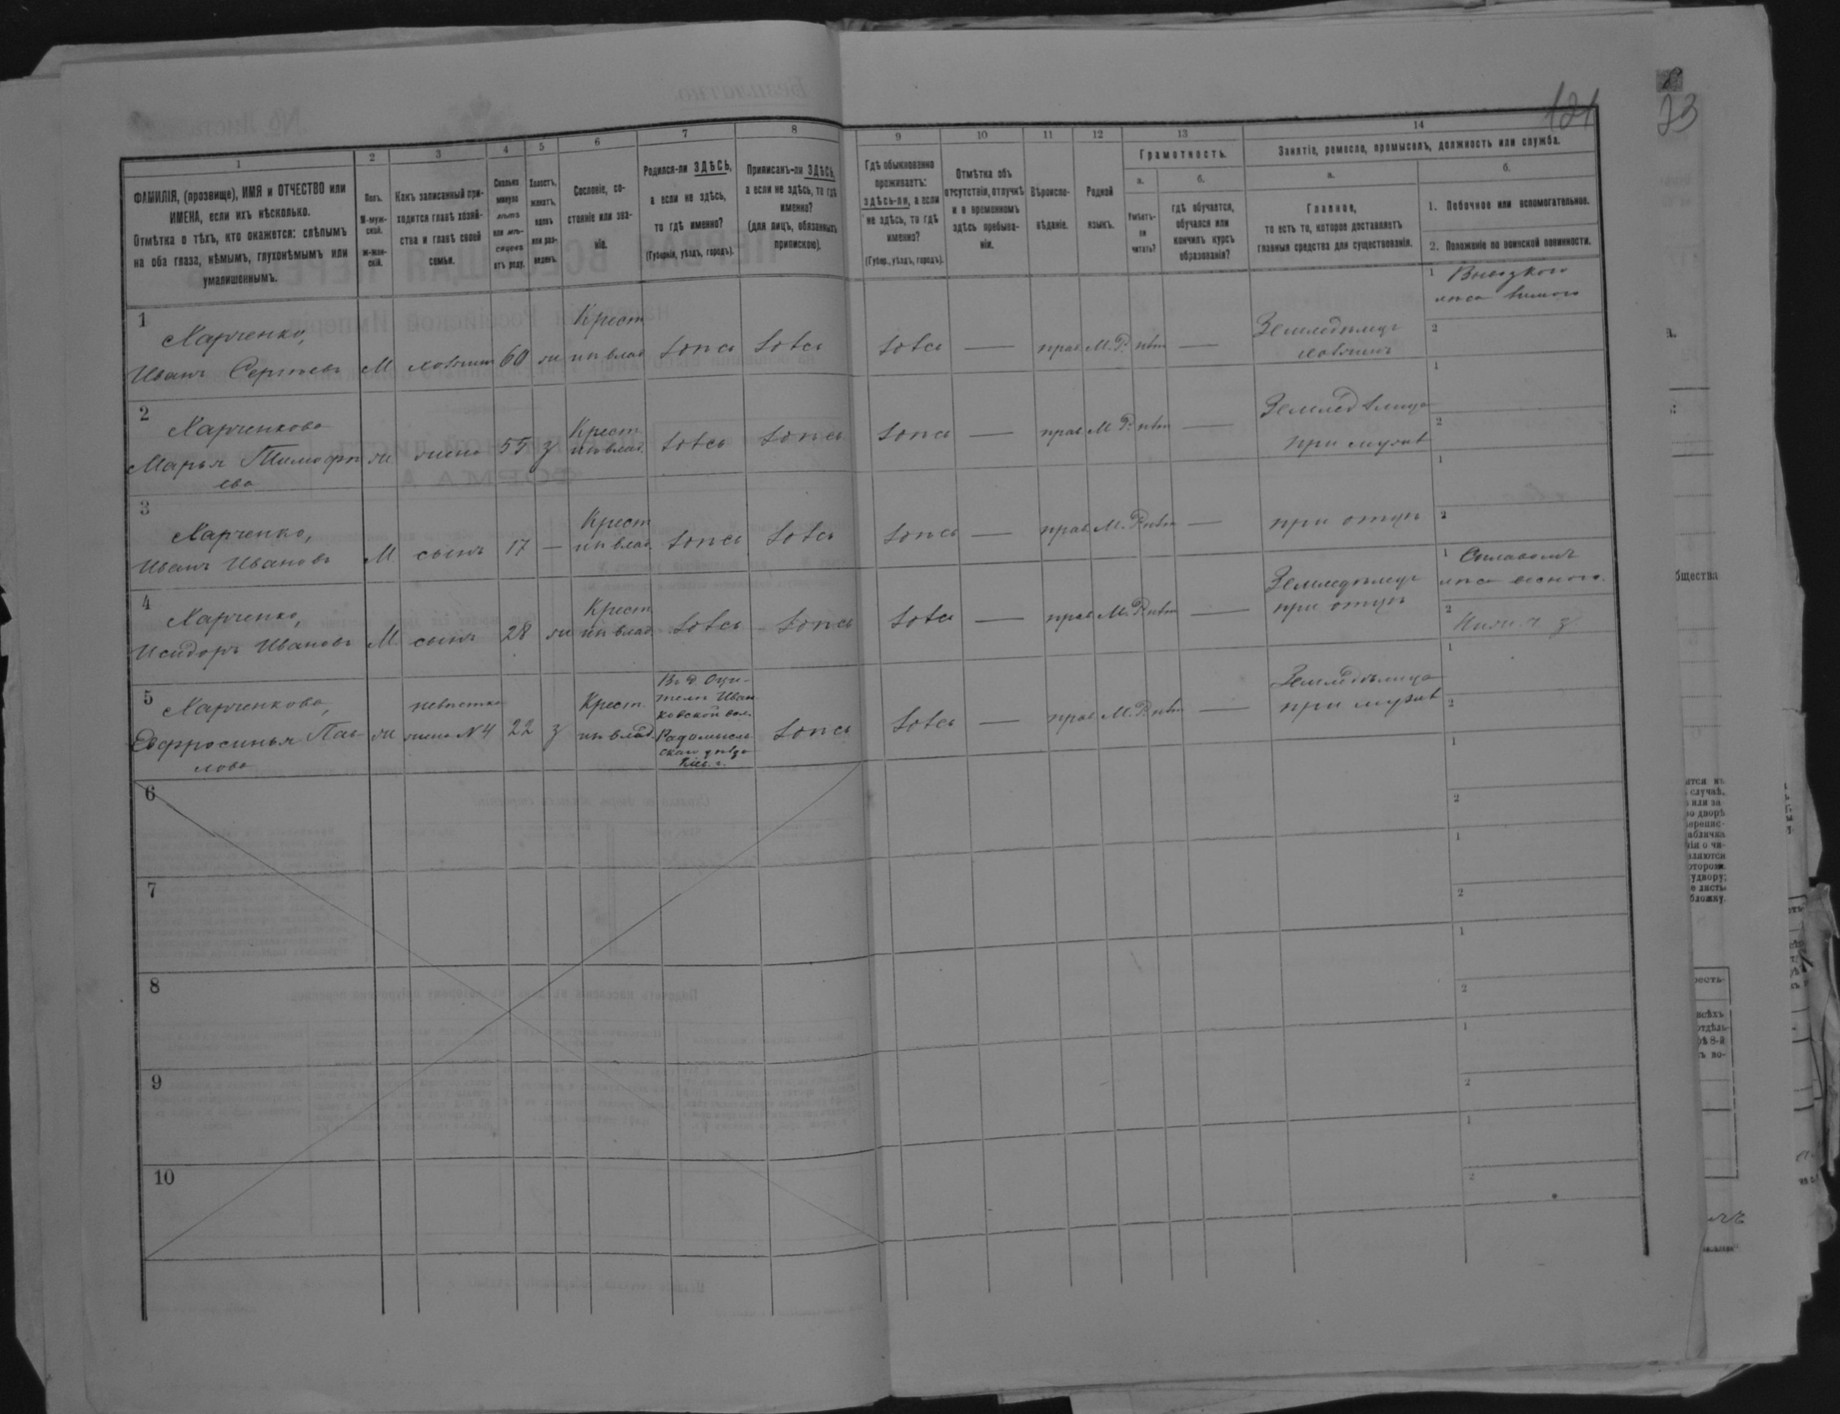 121
23
1
2
3
4
5
6
7
8
9
10
11
12
13
14
ФАМИЛІЯ, (прозвище), ИМЯ и ОТЧЕСТВО или
ИМЕНА, если ихъ нѣсколько.
Отмѣтка о тѣхъ, кто окажется: слѣпымъ
на оба глаза, нѣмымъ, глухонѣмымъ или
умалишеннымъ.
Полъ.
М-муж-
ской.
Ж-жен-
скій.
Какъ записанный при-
ходится главѣ хозяй-
ства и главѣ своей
семьи.
Сколько
минуло
лѣтъ
или мѣ-
сяцевъ
отъ роду.
Холостъ,
женатъ,
вдовъ
или раз-
веденъ.
Сословіе, со-
стояніе или зва-
ніе.
Родился-ли ЗДѢСЬ,
а если не здѣсь,
то гдѣ именно?
(Губернія, уѣздъ, городъ).
Приписанъ-ли ЗДѢСЬ,
а если не здѣсь, то гдѣ
именно?
(для лицъ, обязанныхъ
припискою).
Гдѣ обыкновенно
проживаетъ:
здѣсь-ли, а если
не здѣсь, то гдѣ
именно?
(Губер., уѣздъ, городъ).
Отмѣтка объ
отсутствіи, отлучкѣ
и о временномъ
здѣсь пребыва-
ніи.
Вѣроиспо-
вѣданіе.
Родной
языкъ.
Грамотность.
а.
Умѣетъ-
ли
читать?
б.
гдѣ обучается,
обучался или
кончилъ курсъ
образованія?
Занятіе, ремесло, промыселъ, должность или служба.
а.
Главное,
то есть то, которое доставляетъ
главныя средства для существованія.
б.
1. Побочное или вспомогательное.
2. Положеніе по воинской повинности.
1
Харченко,
Иванъ Сергѣевъ
М
хозяинъ
60
ж
Крест.
ип влад.
здѣсь
здѣсь
здѣсь
—
прав.
М. Р.
нѣтъ
—
Земледѣлецъ
хозяинъ
1
лѣса
2
2
Харченкова
Марья Тимофѣ
ева
ж
жена
55
з
Крест.
ип влад.
здѣсь
здѣсь
здѣсь
—
прав.
М. Р.
нѣтъ
—
Земледѣлица
при мужѣ
1
2
3
Харченко,
Иванъ Ивановъ
М
сынъ
17
—
Крест.
ип влад.
здѣсь
здѣсь
здѣсь
—
прав.
М. Р.
нѣтъ
—
при отцѣ
1
2
4
Харченко,
Исидоръ Ивановъ
М
сынъ
28
ж
Крест.
ип влад.
здѣсь
здѣсь
здѣсь
—
прав.
М. Р.
нѣтъ
—
Земледѣлецъ
при отцѣ
1 Сплавомъ
лѣса весною.
2
5
Харченкова,
Евфросинья Пав-
лова
ж
невѣстка
жена №4
22
з
Крест.
ип влад.
Иван
ковской вол.
Радомысль
скаго уѣзда
Кіев. г.
здѣсь
здѣсь
—
прав.
М. Р.
нѣтъ
—
Земледѣлица
при мужѣ
1
2
6
1
2
7
1
2
8
1
2
9
1
2
10
1
2
бщества